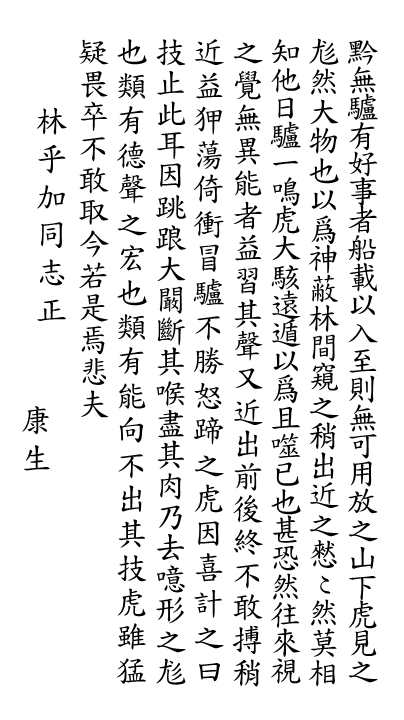 黔無驢有好事者船載以入至則無可用放之山下虎見之
尨然大物也以爲神蔽林間窺之稍出近之憖〻然莫相
知他日驢一鳴虎大駭遠遁以爲且噬已也甚恐然往來視
之覺無異能者益習其聲又近出前後終不敢搏稍
近益狎蕩倚衝冒驢不勝怒蹄之虎因喜計之曰
技止此耳因跳踉大㘚斷其喉盡其肉乃去噫形之尨
也類有德聲之宏也類有能向不出其技虎雖猛
疑畏卒不敢取今若是焉悲夫
林乎加同志正
康生